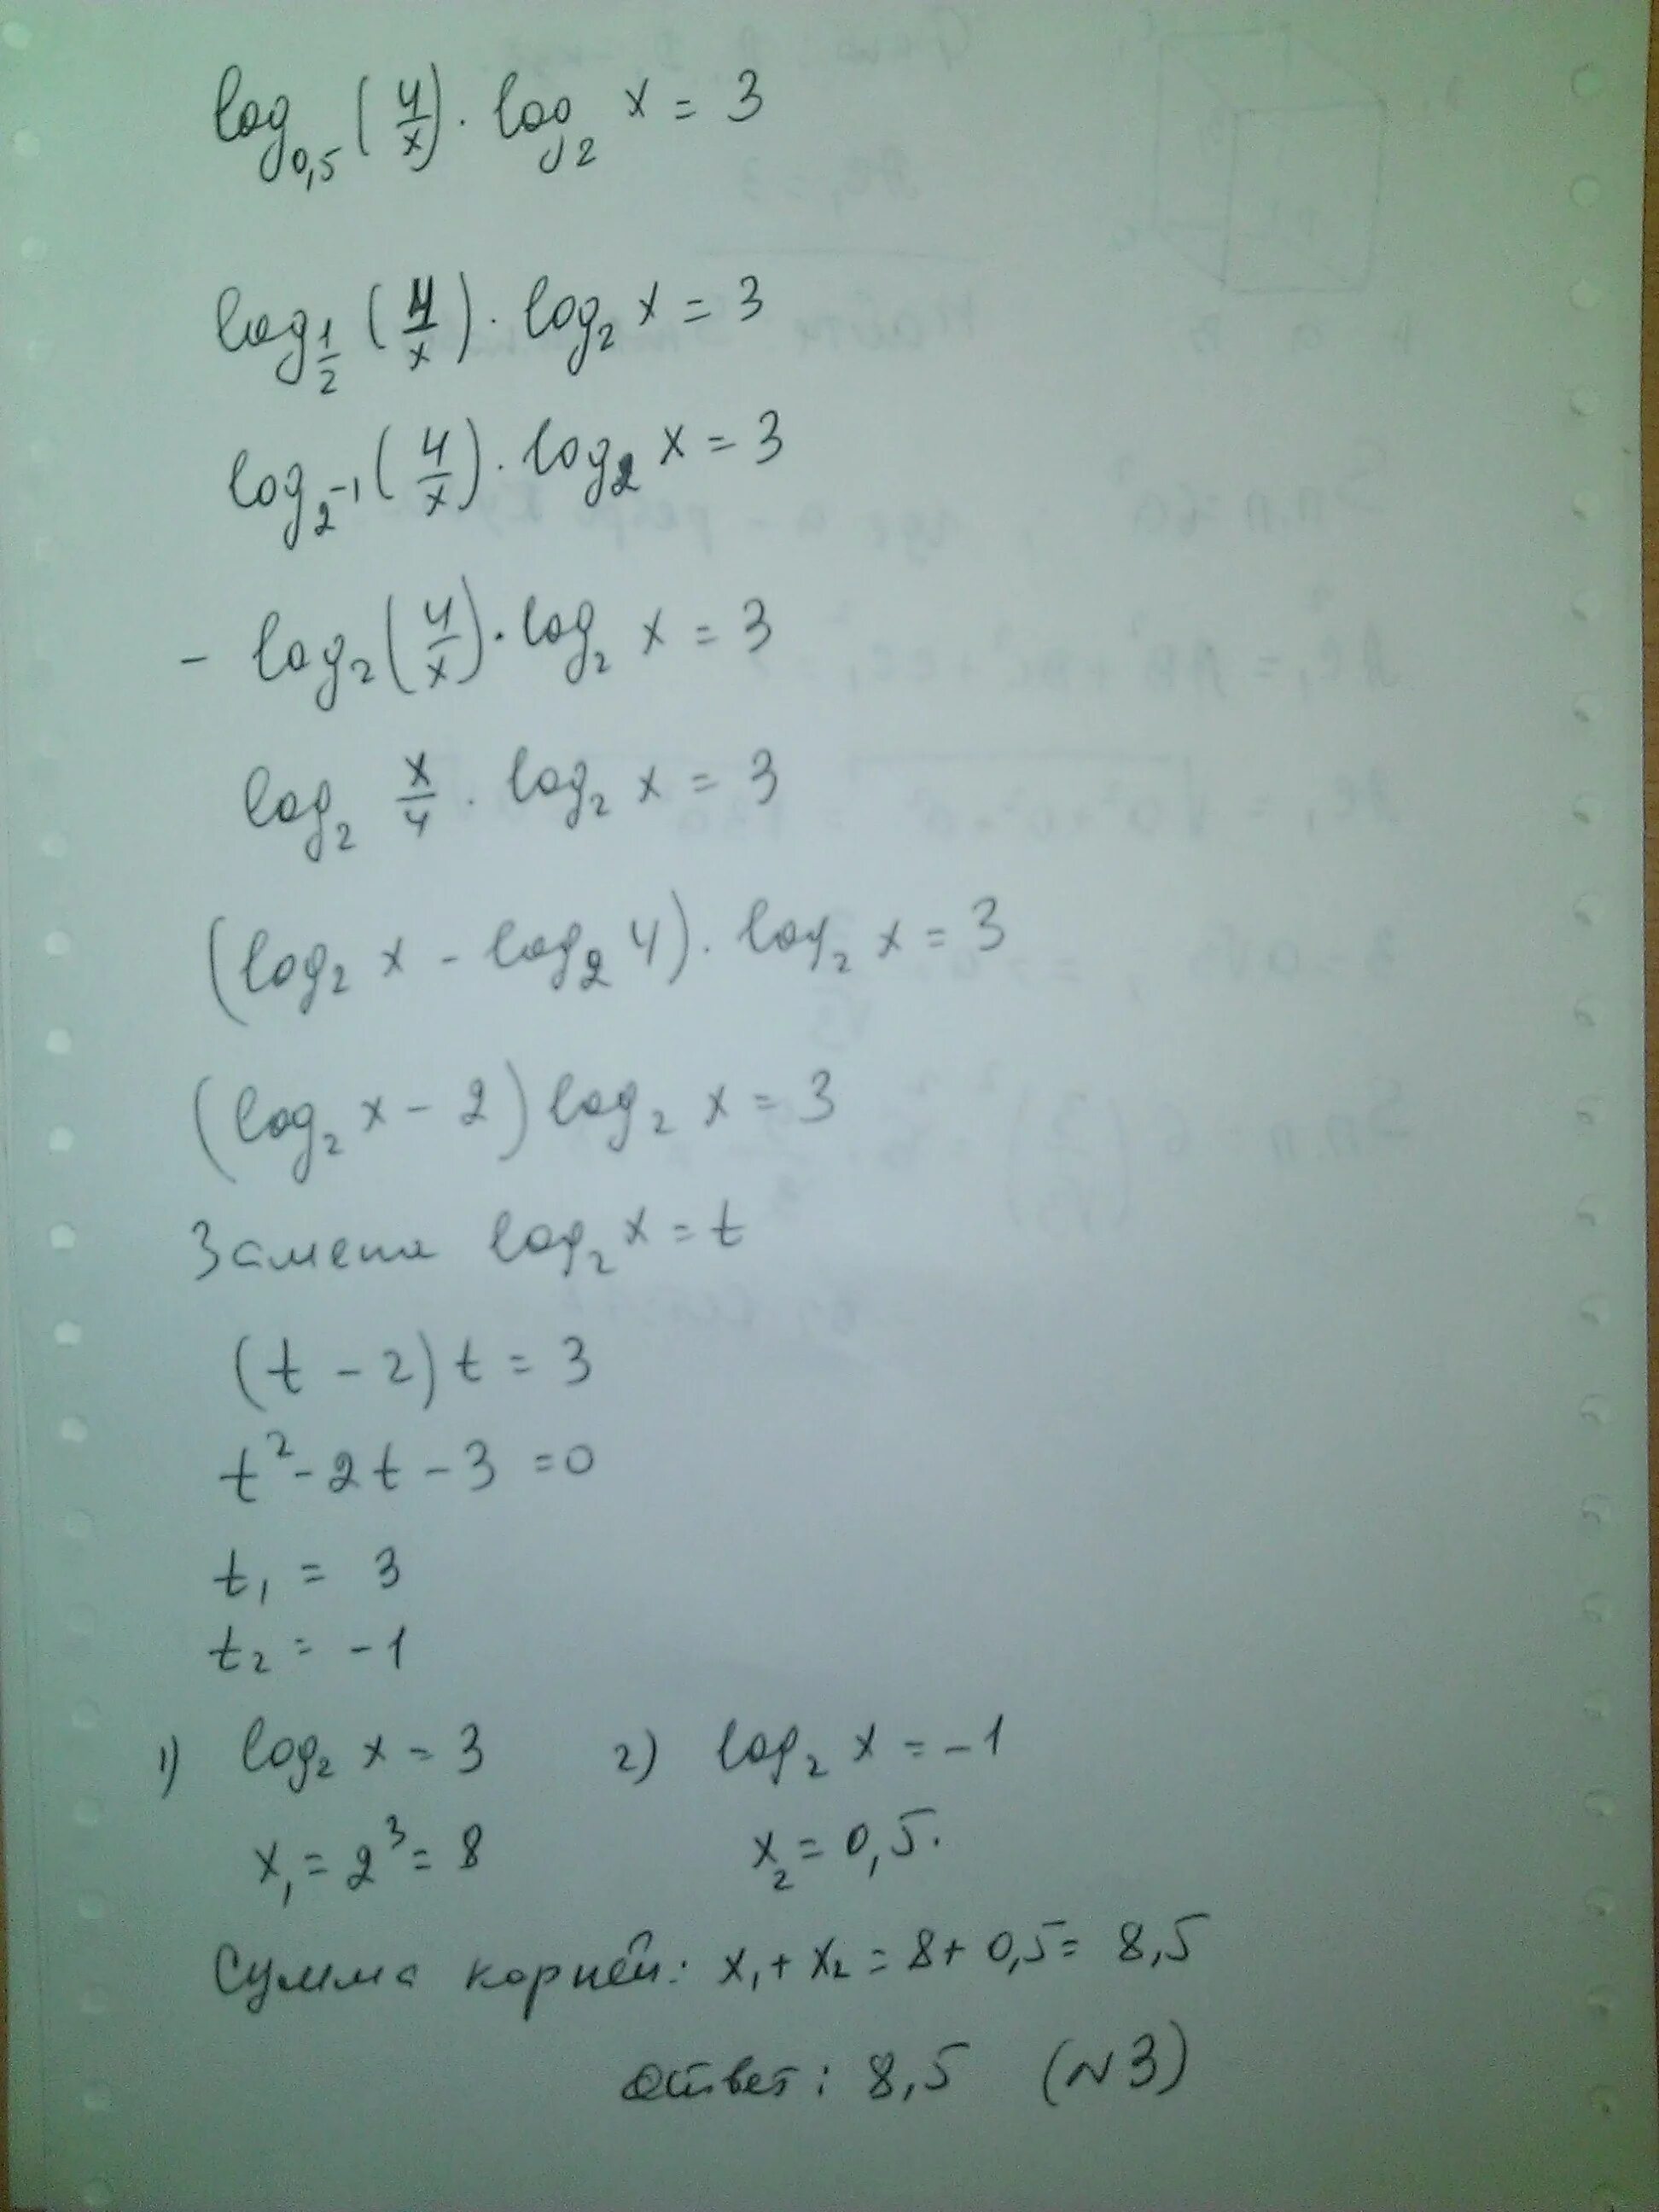 log₀,₅ (4/x) · log₂ x = 3
log₁/₂ (4/x) · log₂ x = 3
log₂⁻¹ (4/x) · log₂ x = 3
- log₂ (4/x) · log₂ x = 3
log₂ x/4 · log₂ x = 3
(log₂ x - log₂ 4) · log₂ x = 3
(log₂ x - 2) log₂ x = 3
Замена log₂ x = t
(t - 2) t = 3
t² - 2t - 3 = 0
t₁ = 3
t₂ = -1
1) log₂ x = 3 2) log₂ x = -1
x₁ = 2³ = 8 x₂ = 0,5.
Сумма корней: x₁ + x₂ = 8 + 0,5 = 8,5
Ответ: 8,5 (N3)